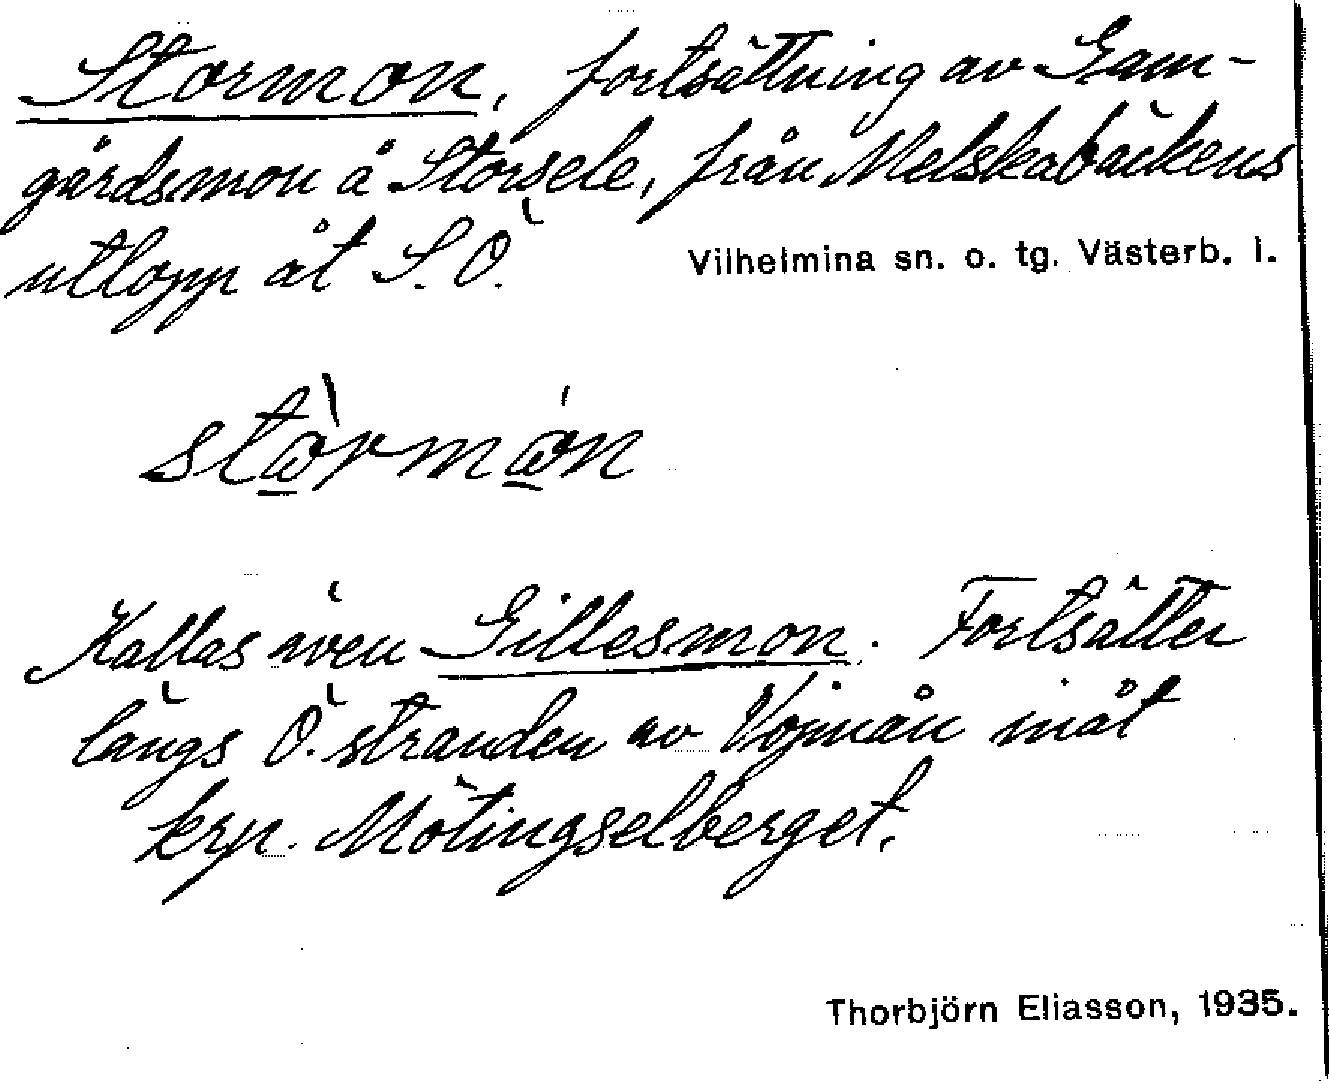 Stormon, fortsättning av Gam-
gårdsmon å Storsele, från Melskabäckens
utlopp åt S.Ö.
Vilhelmina sn. o. tg. Västerb. l.
stòrmón
Kallas även Gillesmon. Fortsätter
längs Ö. stranden av Vojmån inåt
krp. Mötingselberget.
Thorbjörn Eliasson, 1935.